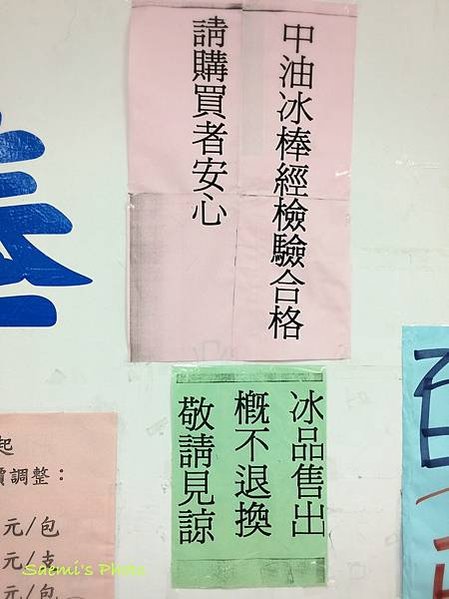 中油冰棒經檢驗合格
請購買者安心
冰品售出
概不退換
敬請見諒
起
調整：
元/包
元/支
元/包
Saemi's Photo